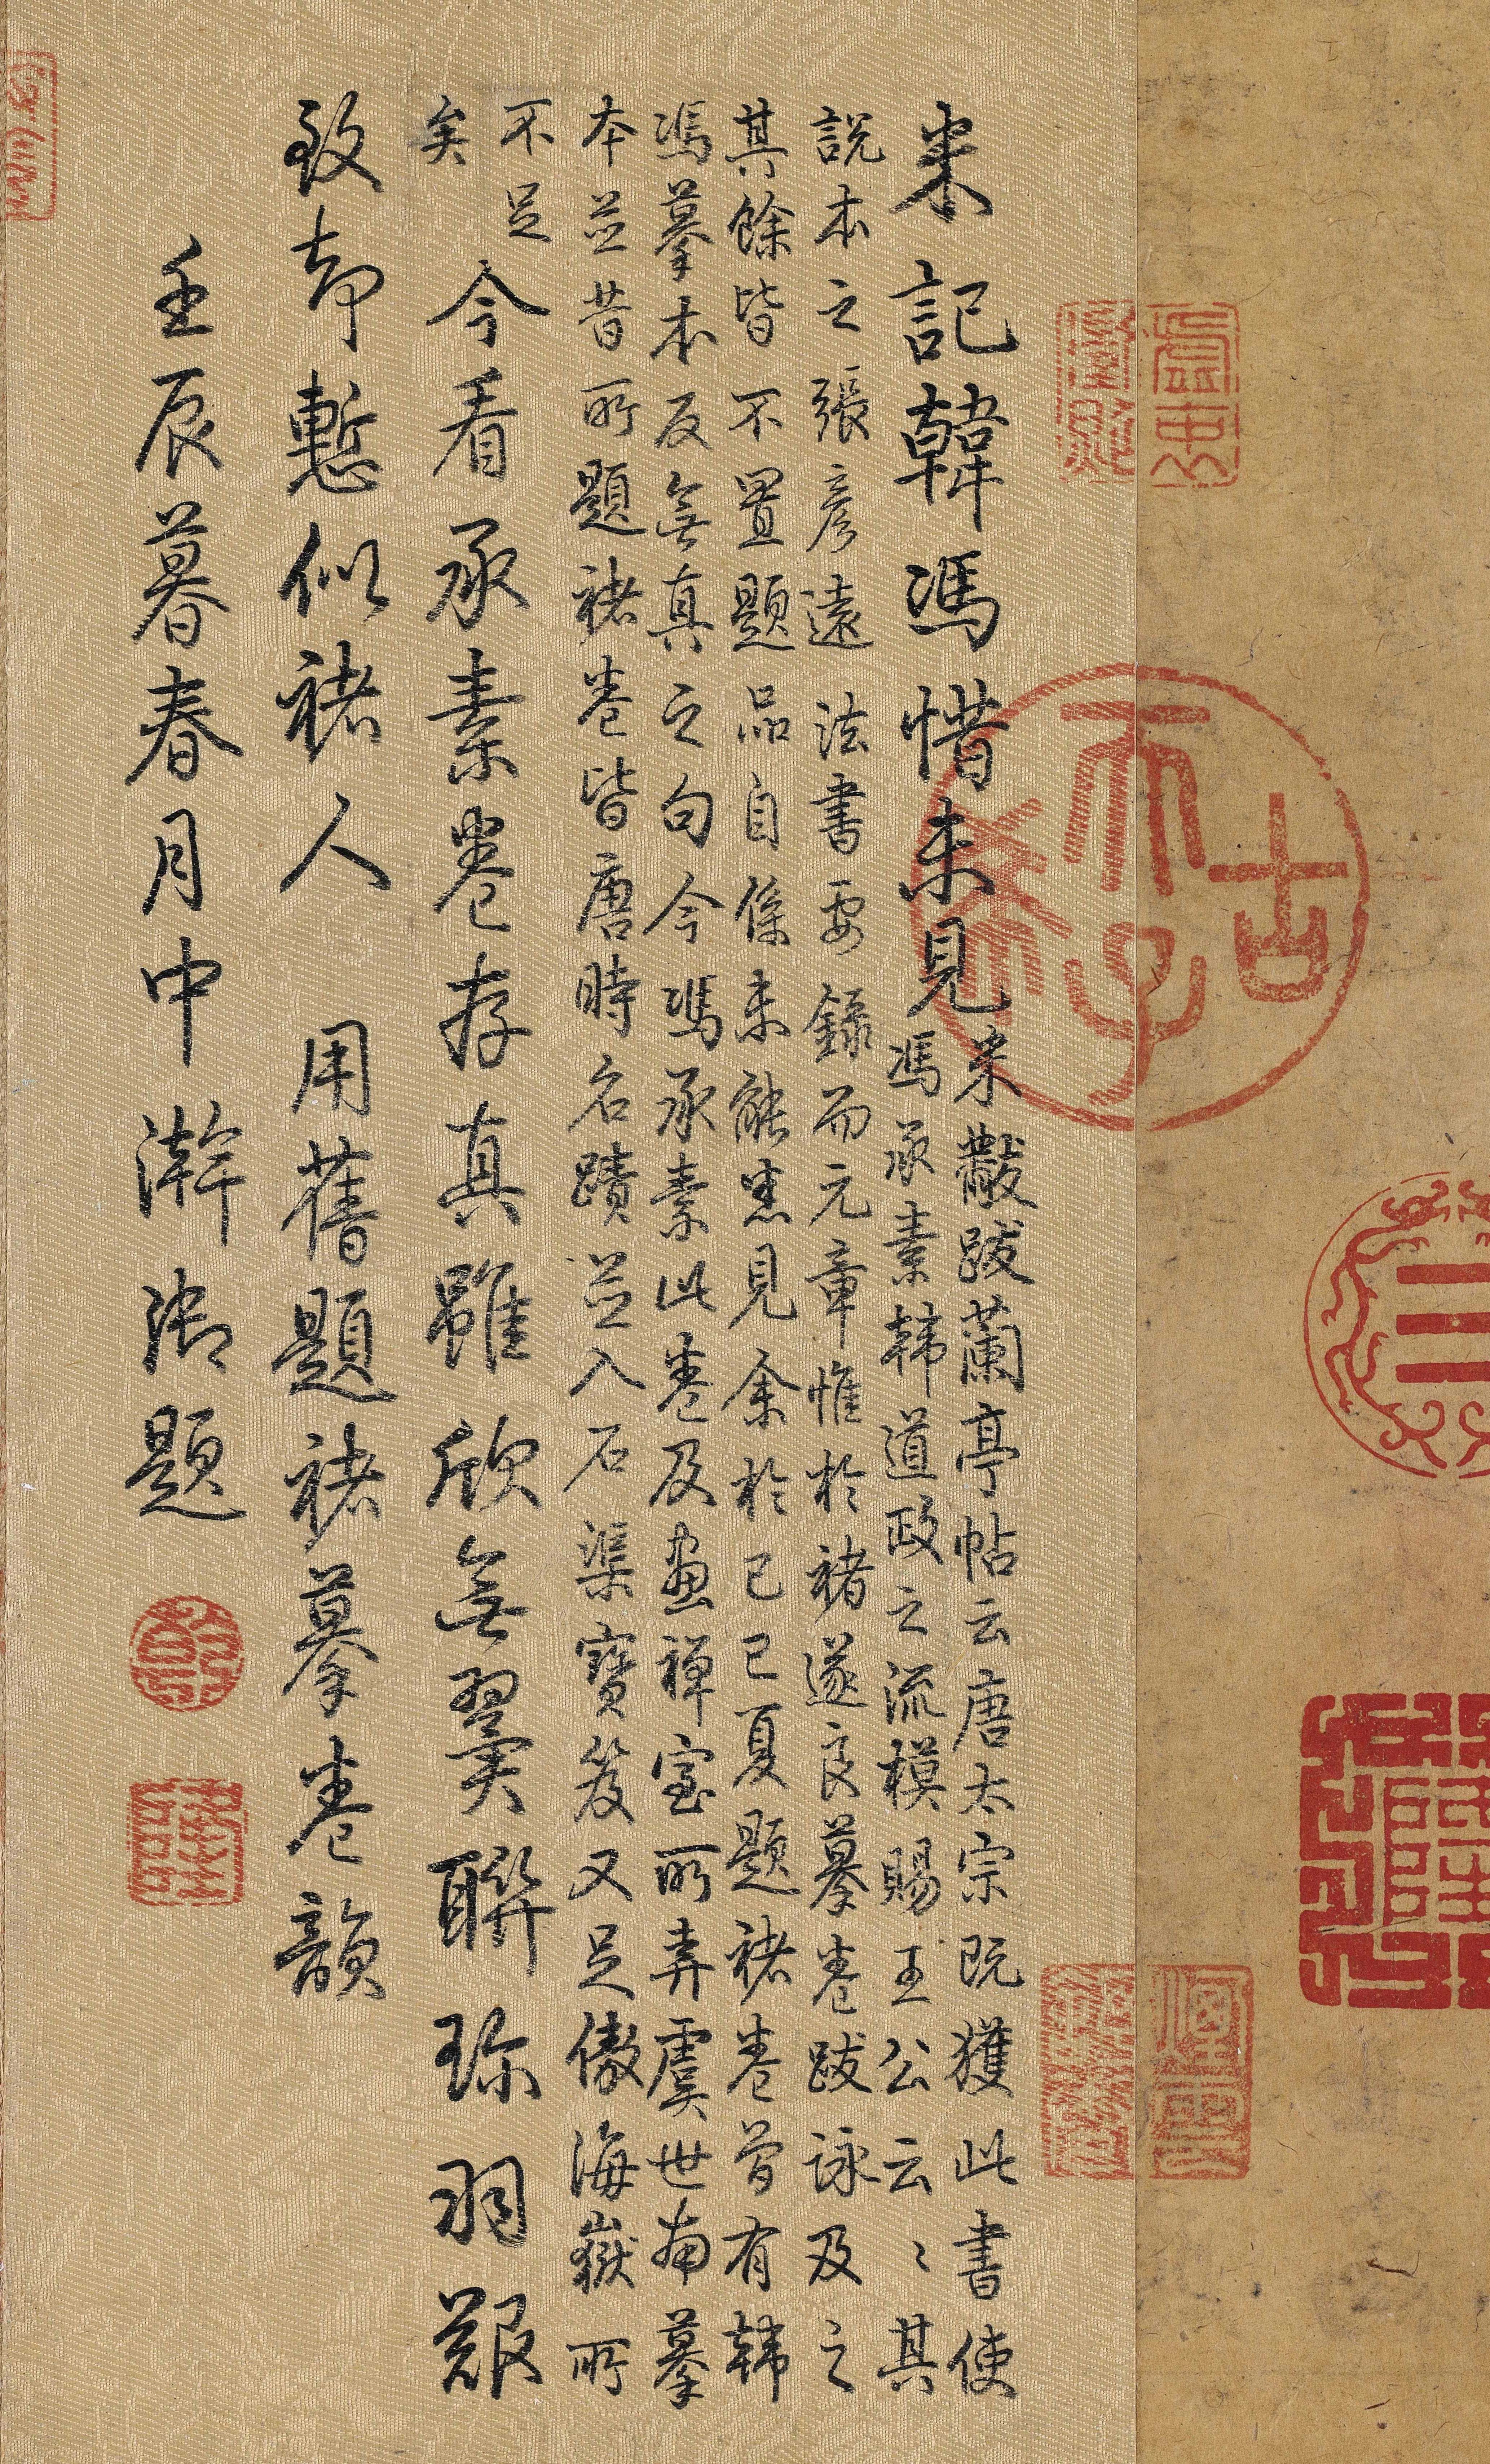 米記韓馮惜未見
米黻跋蘭亭帖云唐太宗既獲此書使
馮承素韓道政之流模賜王公云〻其
說本之張彥遠法書要錄而元章惟於褚遂良摹卷跋詠及之
其餘皆不置題品自係未能悉見余於己巳夏題褚卷曾有韓
馮摹本反無真之句今馮承素此卷及畫禪室所弆虞世南摹
本並昔所題褚卷皆唐時名蹟並入石渠寶笈又足傲海嶽所
不足
矣
今看承素卷存真雖欣無翼聯珎羽艱
致却慙似褚人 用舊題褚摹卷韻
壬辰暮春月中澣御題
太上皇帝